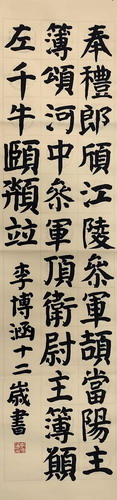 奉禮郎頎江陵叅軍頡當陽主
簿頌河中叅軍頂衛尉主簿願
左千牛頤頮並
李博涵十二歲書